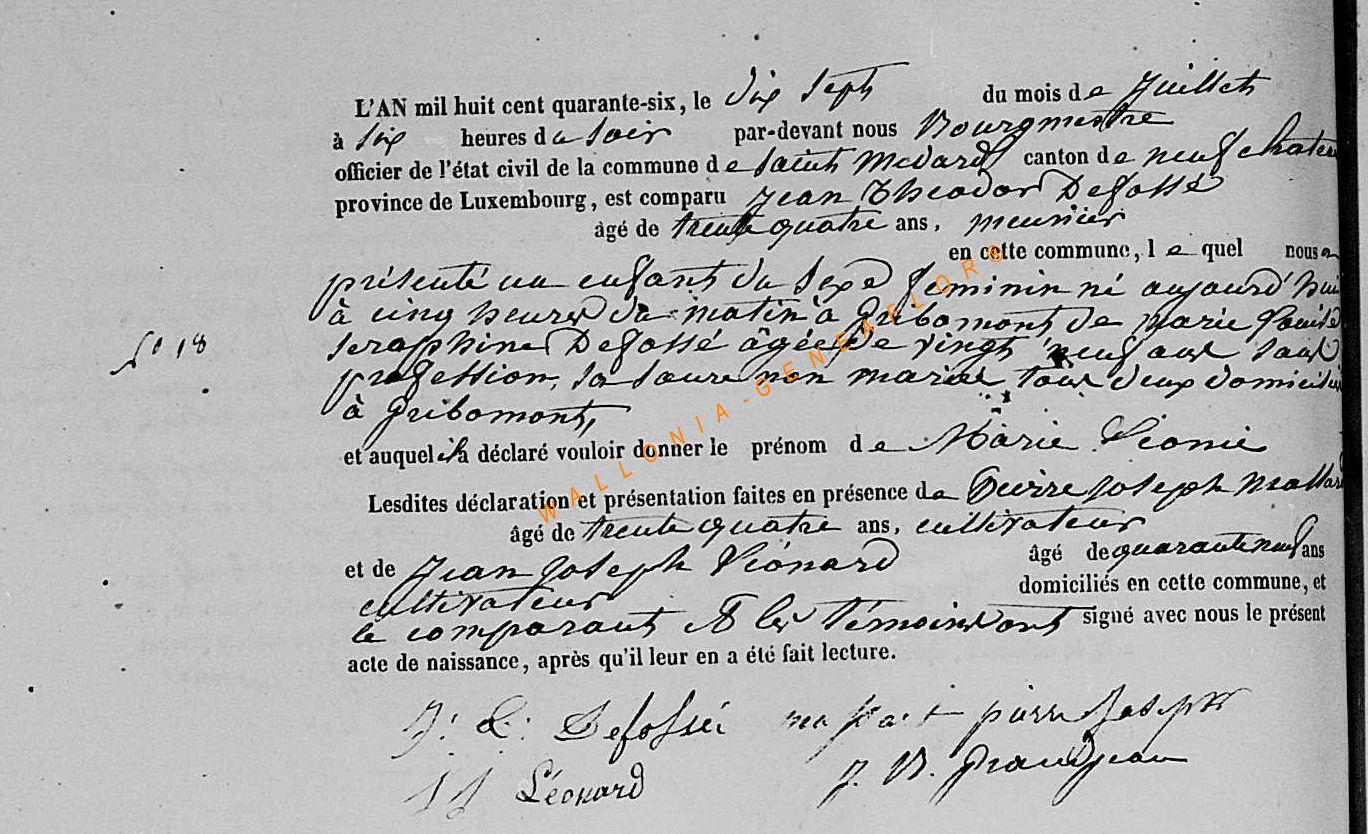 L'AN mil huit cent quarante-six, le dix sept du mois de Juillet
à six heures du soir par-devant nous Bourgmestre
officier de l'état civil de la commune de saint medard canton de neufchateau
province de Luxembourg, est comparu Jean Theodor Defossé
âgé de trente quatre ans, meunier
en cette commune, le quel nous a
présenté un enfant du sexe feminin né aujourd'hui
à cinq heures du matin à Gribomont de marie Louise
N° 18
seraphine Defossé âgée de vingt neuf ans sans
profession, sa soeure non mariée, tous deux domiciliés
à Gribomont,
et auquel il a déclaré vouloir donner le prénom de Marie Léonie
Lesdites déclaration et présentation faites en présence de Pierre Joseph
âgé de trente quatre ans, cultivateur
et de Jean Joseph Léonard âgé de quarante neuf ans
cultivateur domiciliés en cette commune, et
le comparant et les témoins ont signé avec nous le présent
acte de naissance, après qu'il leur en a été fait lecture.
J: Defossé pierre Joseph
J J Léonard J. B. Grandjean
WALLONIA-GENEAFLOR©